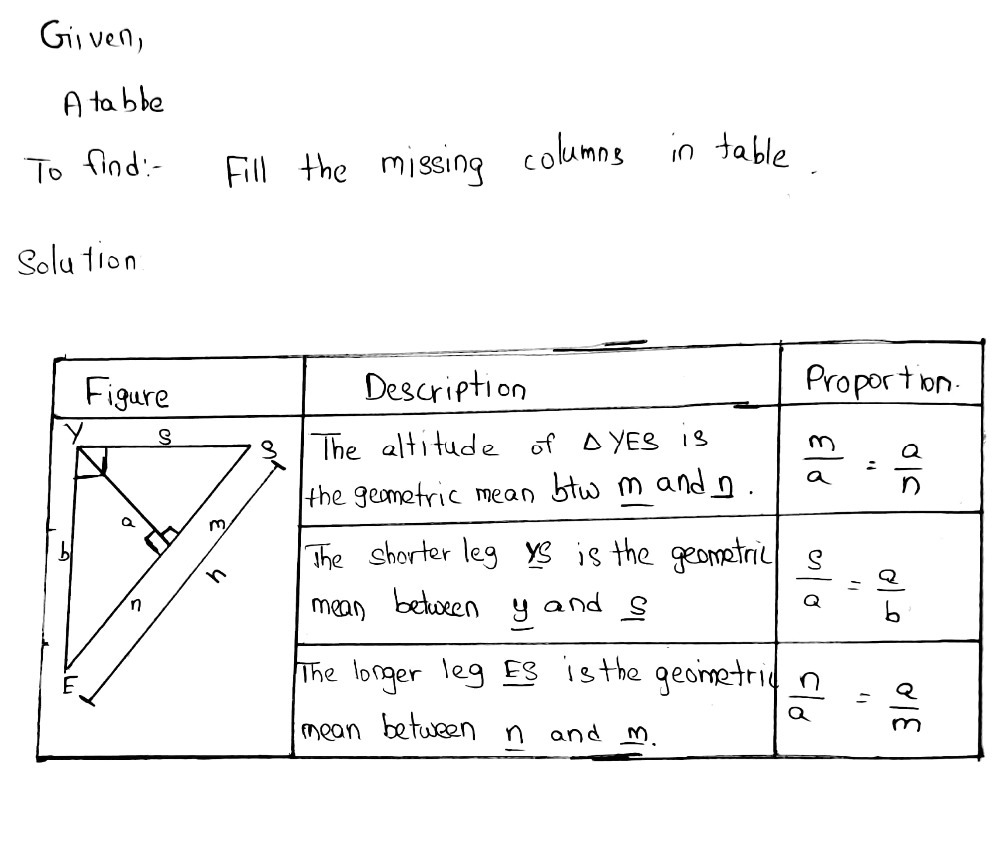 Giiven,
A tabbe
To find:- Fill the missing columns in table.
Solution
Figure
Description
Proportion.
Y
S
S
a
m
b
n
h
E
The altitude of Δ YES is
the geometric mean btw m and n.
m/a = a/n
The shorter leg YS is the geometric
mean between y and S
S/a = a/b
The longer leg ES is the geometric
mean between n and m.
n/a = a/m